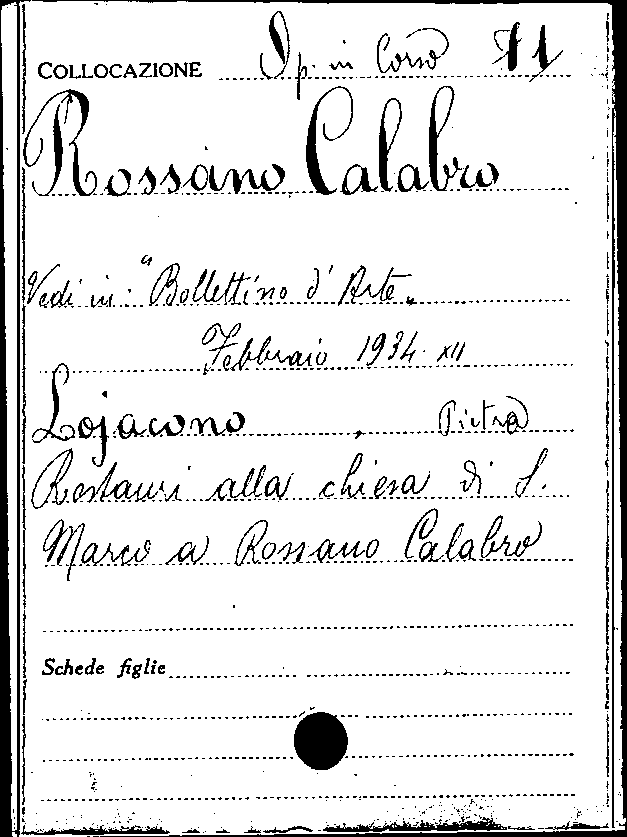 COLLOCAZIONE Op. in Corso 71
Rossano Calabro
Vedi in: "Bollettino d'Arte„
Febbraio 1934 XII
Lojacono, Pietro
Restauri alla chiesa di S.
Marco a Rossano Calabro
Schede figlie